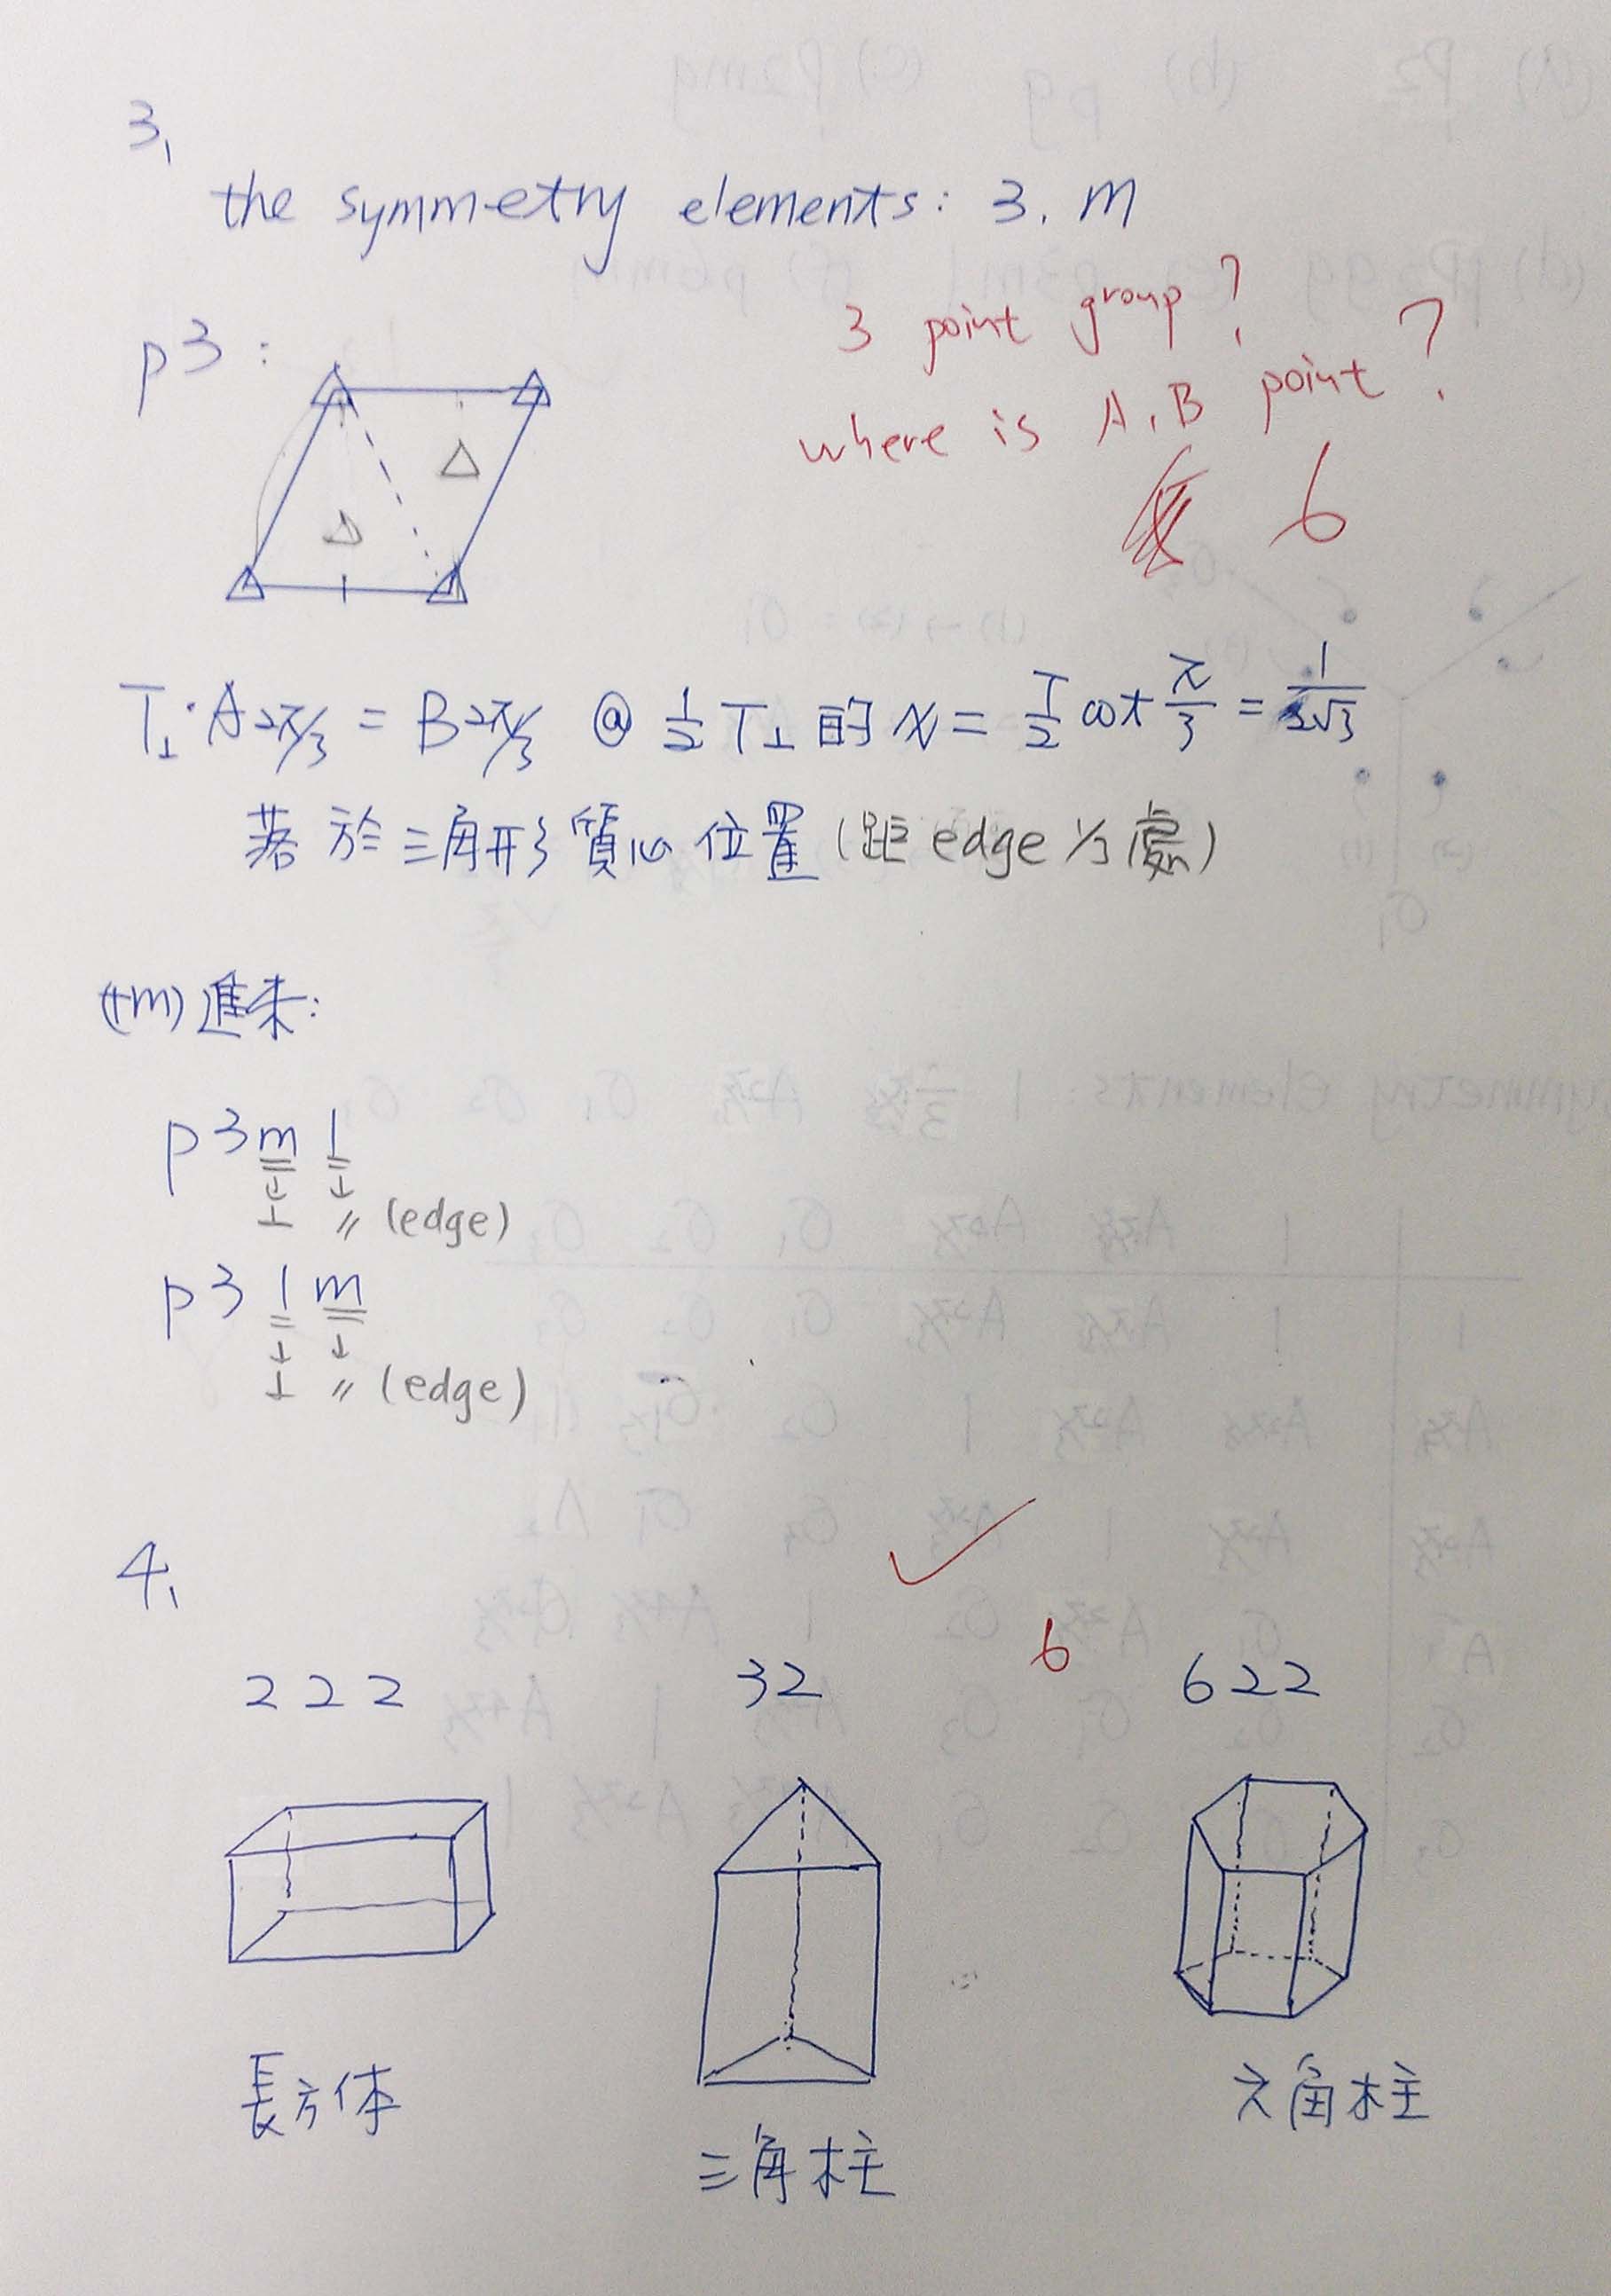 3,
the symmetry elements: 3. m
3 point group?
p3:
where is A,B point?
6
T⊥·A2π/3 = B2π/3 @ 1/2 T⊥ 的 x = T/2 cot π/3 = 1/2√3
落於三角形質心位置(距 edge 1/3 處)
(+m)進來:
p3m1
↓ ↓
⊥ // (edge)
p31m
↓ ↓
⊥ // (edge)
4,
6
222 32 622
長方体
三角柱
六角柱